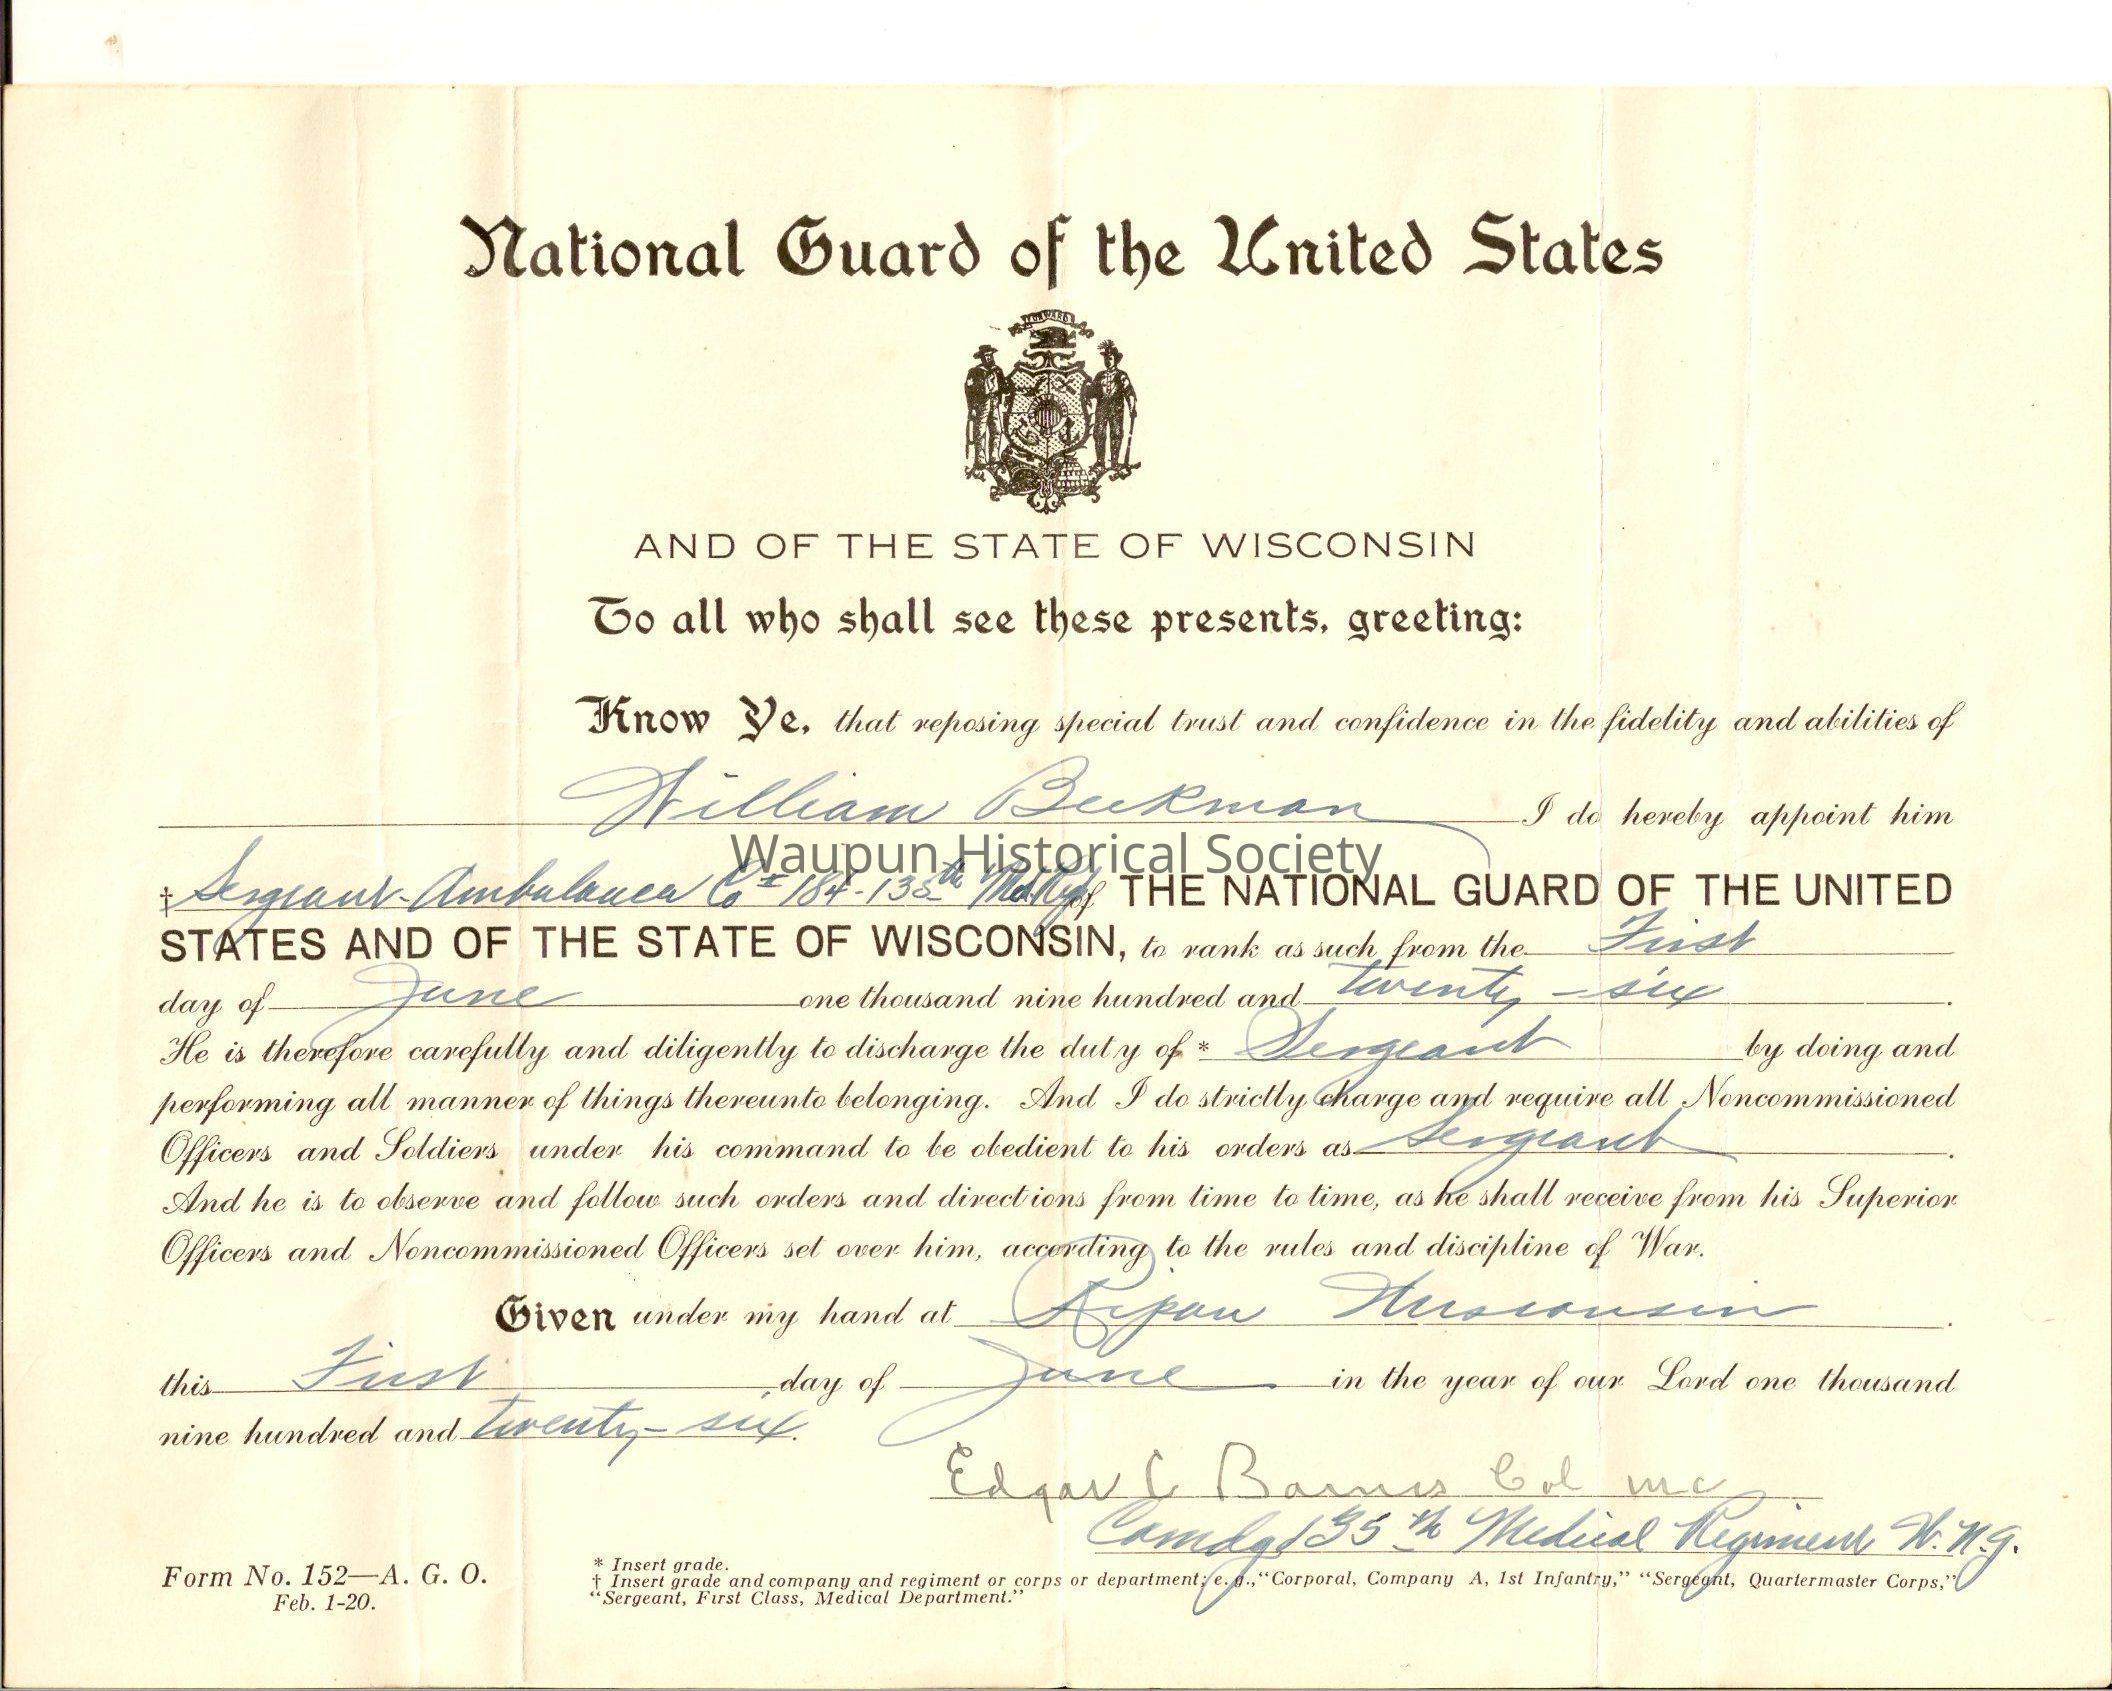 National Guard of the United States
FORWARD
AND OF THE STATE OF WISCONSIN
To all who shall see these presents, greeting:
Know Ye, that reposing special trust and confidence in the fidelity and abilities of
William Beekman I do hereby appoint him
Waupun Historical Society
† Sergeant - Ambulance Co # 184 - 135th Med Reg of THE NATIONAL GUARD OF THE UNITED
STATES AND OF THE STATE OF WISCONSIN, to rank as such from the First
day of June one thousand nine hundred and twenty-six.
He is therefore carefully and diligently to discharge the duty of * Sergeant by doing and
performing all manner of things thereunto belonging. And I do strictly charge and require all Noncommissioned
Officers and Soldiers under his command to be obedient to his orders as Sergeant.
And he is to observe and follow such orders and directions from time to time, as he shall receive from his Superior
Officers and Noncommissioned Officers set over him, according to the rules and discipline of War.
Given under my hand at Ripon Wisconsin.
this First day of June in the year of our Lord one thousand
nine hundred and twenty-six.
Edgar C Barnes Col MC
Comdg 135th Medical Regiment W.N.G.
Form No. 152—A. G. O.
Feb. 1-20.
* Insert grade.
† Insert grade and company and regiment or corps or department; e. g., "Corporal, Company A, 1st Infantry," "Sergeant, Quartermaster Corps,"
"Sergeant, First Class, Medical Department."